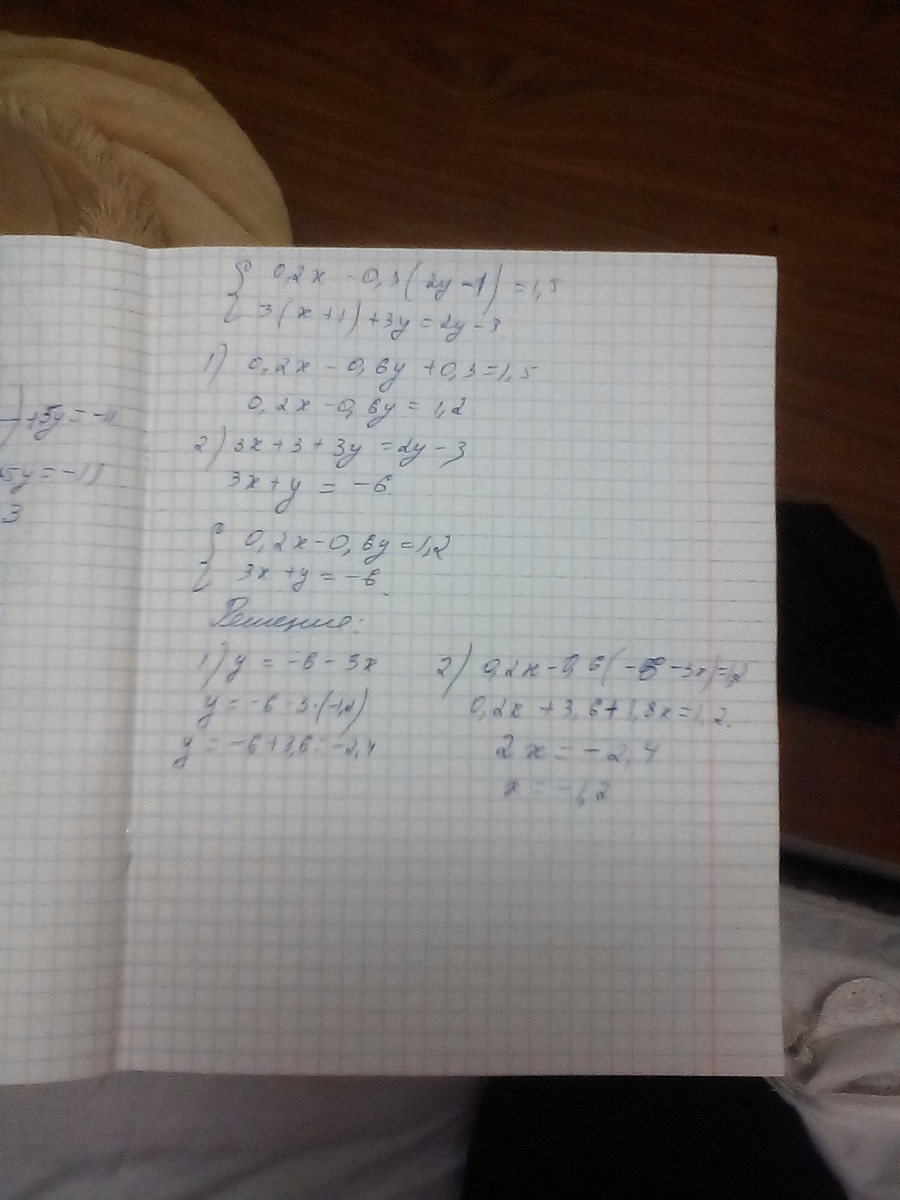 +5y = -11
5y = -11
3
{ 0,2x - 0,3(2y - 1) = 1,5
3(x + 1) + 3y = 2y - 3
1) 0,2x - 0,6y + 0,3 = 1,5
0,2x - 0,6y = 1,2
2) 3x + 3 + 3y = 2y - 3
3x + y = -6.
{ 0,2x - 0,6y = 1,2
3x + y = -6.
Решение:
1) y = -6 - 3x
y = -6 - 3·(-1,2)
y = -6 + 3,6 = -2,4
2) 0,2x - 0,6(-6 - 3x) = 1,2
0,2x + 3,6 + 1,8x = 1,2.
2x = -2,4
x = -1,2